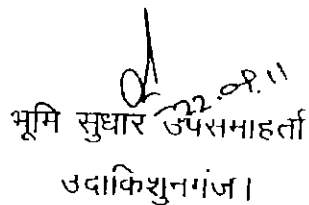 22.09.11
भूमि सुधार उपसमाहर्ता
उदाकिशुनगंज।